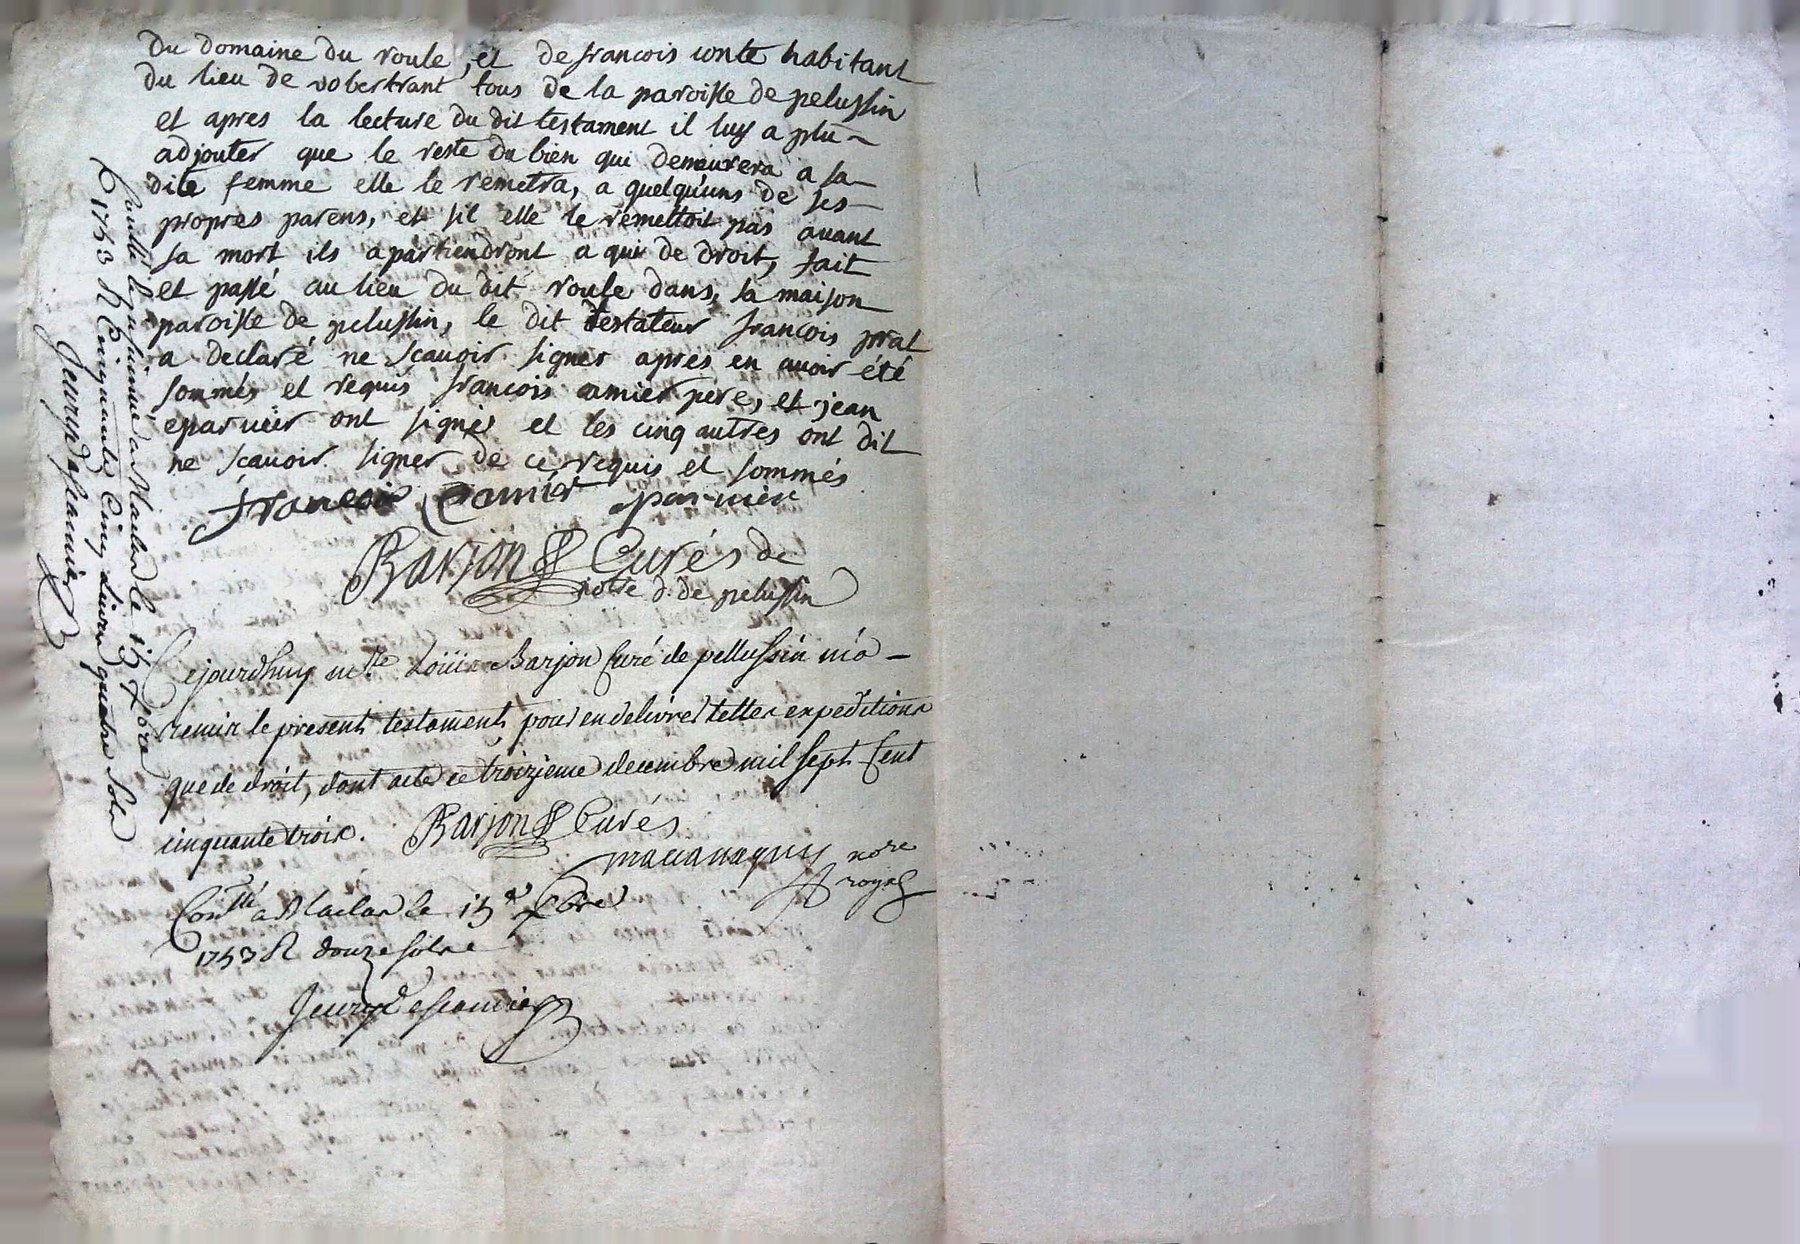 du domaine du roule, et de francois conte habitant
du lieu de vobertrant tous de la paroisse de pelussin
et apres la lecture du dit testament il luy a plu
adjouter que le reste du bien qui demeurera a sa
dite femme elle le remetra, a quelqu'uns de ses
propres parens, et sil elle le remettoit pas avant
sa mort ils apartiendront a qui de droit, fait
et passé au lieu du dit roule dans, sa maison
paroisse de pelussin, le dit testateur francois prat
a declaré ne scavoir signer apres en avoir été
sommés et requis francois camier pere, et jean
eparvier ont signés et les cinq autres ont dit
ne scavoir signer de ce requis et sommés
francois Camier eparvier
Barjon Curés de
notre d. de pelussin
Cejourdhuy mre Loüis Barjon Curé de pellussin ma
remis le present testament pour en delivrer telles expeditions
que de droit, dont acte ce troizieme decembre mil sept Cent
cinquante troix. Barjon Curés
nore
royal
Conllé a Maclas le 15e Xbre
1753 R douze sols
Controllé et insinué a Maclas le 15 Xbre
1753 R Cinquante Cinq Livres quatre sols